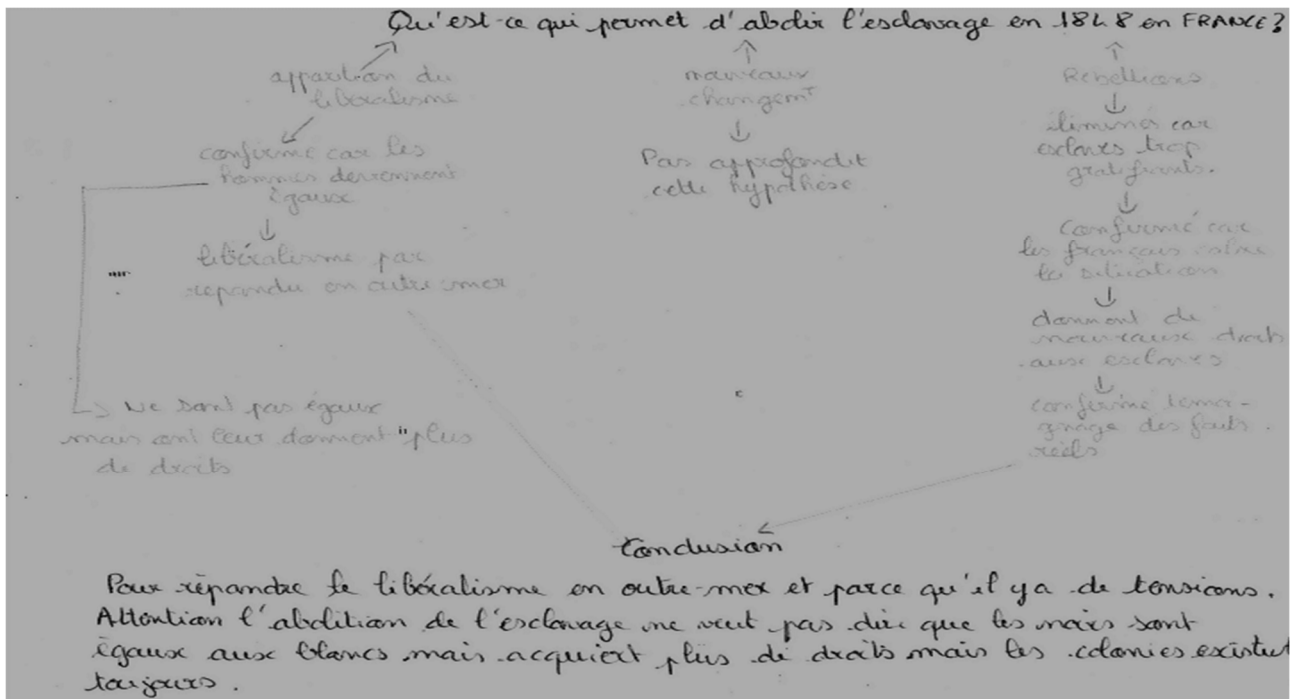 Qu'est-ce qui permet d'abolir l'esclavage en 1848 en FRANCE?
apparition du
libéralisme
confirmé car les
hommes deviennent
égaux
libéralisme pas
répandu en outre-mer
Ne sont pas égaux
mais ont leur donnent "plus
de droits
nouveaux
changemt
Pas approfondit
cette hypothèse
Rebellions
éliminés car
esclaves trop
Confirmé car
les français calme
la situation
donnent de
nouveaux droits
aux esclaves
confirmé témoi-
gnage des faits
réels
Conclusion
Pour répandre le libéralisme en outre-mer et parce qu'il y a de tensions.
Attention l'abolition de l'esclavage ne veut pas dire que les noirs sont
égaux aux blancs mais acquiert plus de droits mais les colonies existent
toujours.